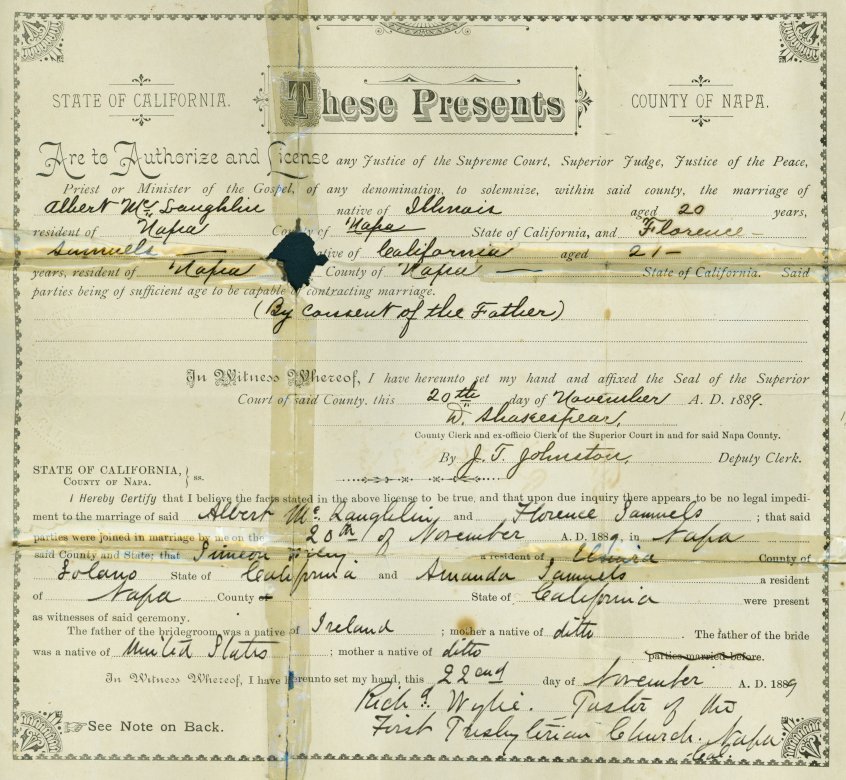 STATE OF CALIFORNIA.
These Presents
COUNTY OF NAPA.
Are to Authorize and License any Justice of the Supreme Court, Superior Judge, Justice of the Peace,
Priest or Minister of the Gospel, of any denomination, to solemnize, within said county, the marriage of
Albert McLaughlin native of Illinois aged 20 years,
resident of Napa County of Napa State of California, and Florence
Samuels native of California aged 21
years, resident of Napa County of Napa State of California. Said
parties being of sufficient age to be capable of contracting marriage.
(By consent of the Father)
In Witness Whereof, I have hereunto set my hand and affixed the Seal of the Superior
Court of said County, this 20th day of November A. D. 1889.
D. Shakespear,
County Clerk and ex-officio Clerk of the Superior Court in and for said Napa County.
By J. T. Johnston, Deputy Clerk.
STATE OF CALIFORNIA,
COUNTY OF NAPA. } ss.
I Hereby Certify that I believe the facts stated in the above license to be true, and that upon due inquiry there appears to be no legal impedi-
ment to the marriage of said Albert McLaughlin and Florence Samuels ; that said
parties were joined in marriage by me on the 20th of November A. D. 1889, in Napa
said County and State; that Simeon a resident of Elmira County of
Solano State of California and Amanda Samuels a resident
of Napa County of State of California were present
as witnesses of said ceremony.
The father of the bridegroom was a native of Ireland ; mother a native of ditto . The father of the bride
was a native of United States ; mother a native of ditto parties married before.
In Witness Whereof, I have hereunto set my hand, this 22nd day of November A. D. 1889
Richd. Wylie. Pastor of the
First Presbyterian Church. Napa
Cal.
☞ See Note on Back.